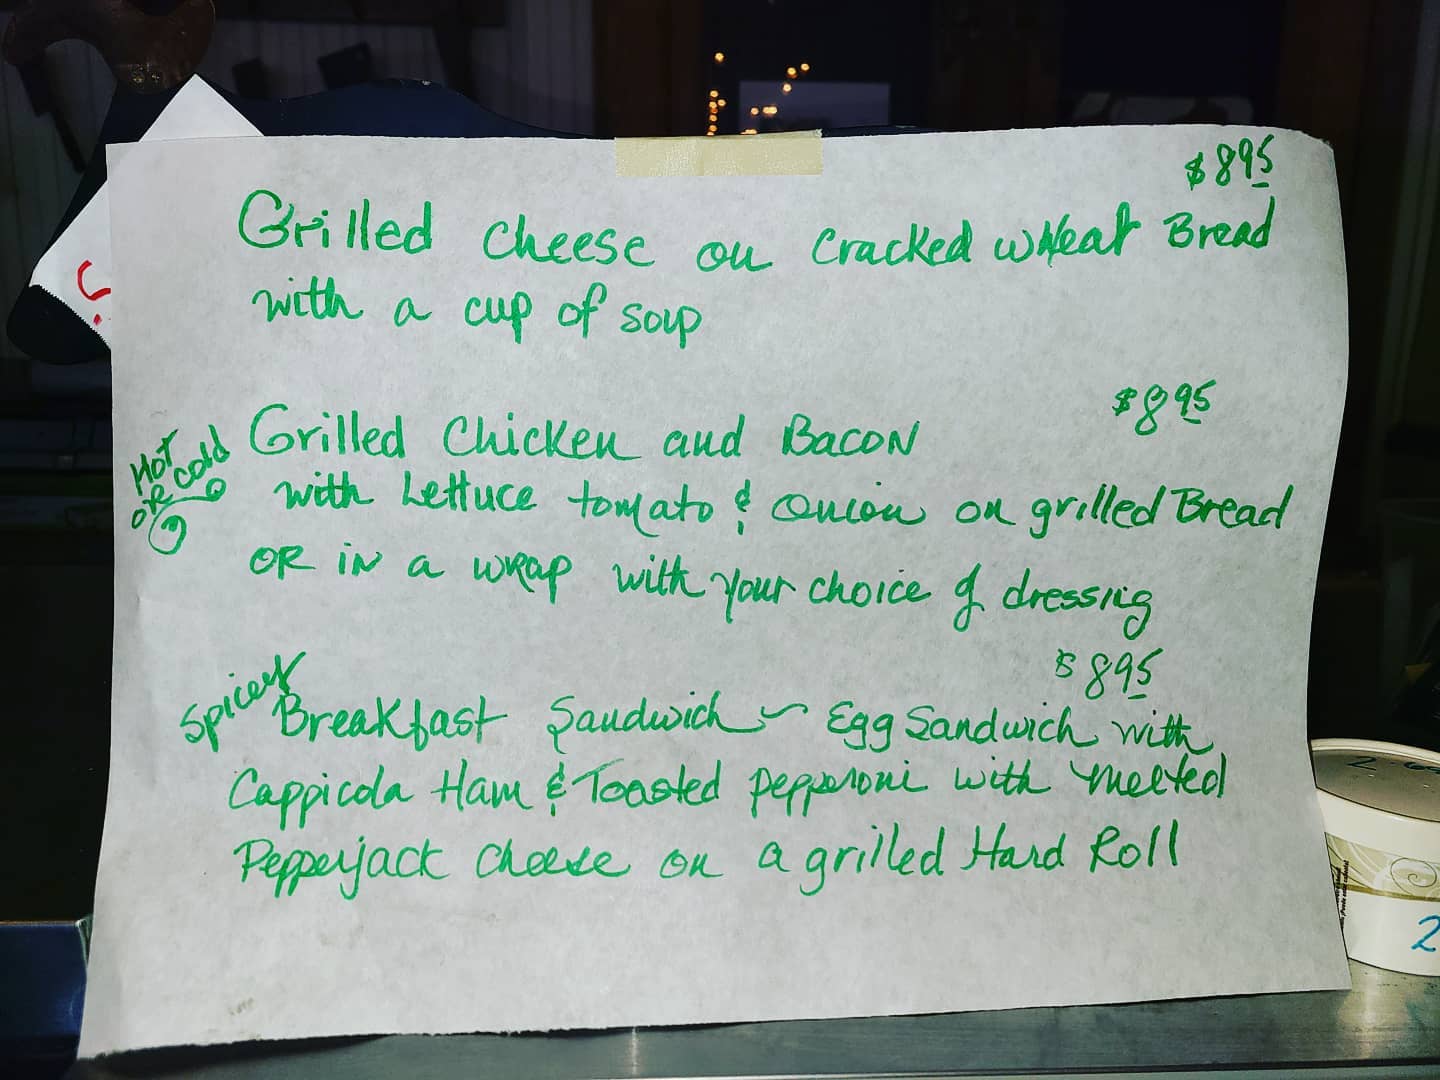 $8.95
Grilled cheese on cracked wheat Bread
with a cup of soup
$8.95
Hot
OR cold
Grilled Chicken and Bacon
with Lettuce tomato & onion on grilled Bread
OR in a wrap with your choice of dressing
$8.95
Spicey
Breakfast Sandwich ~ Egg Sandwich with
Cappicola Ham & Toasted pepperoni with melted
Pepperjack cheese on a grilled Hard Roll
2
2